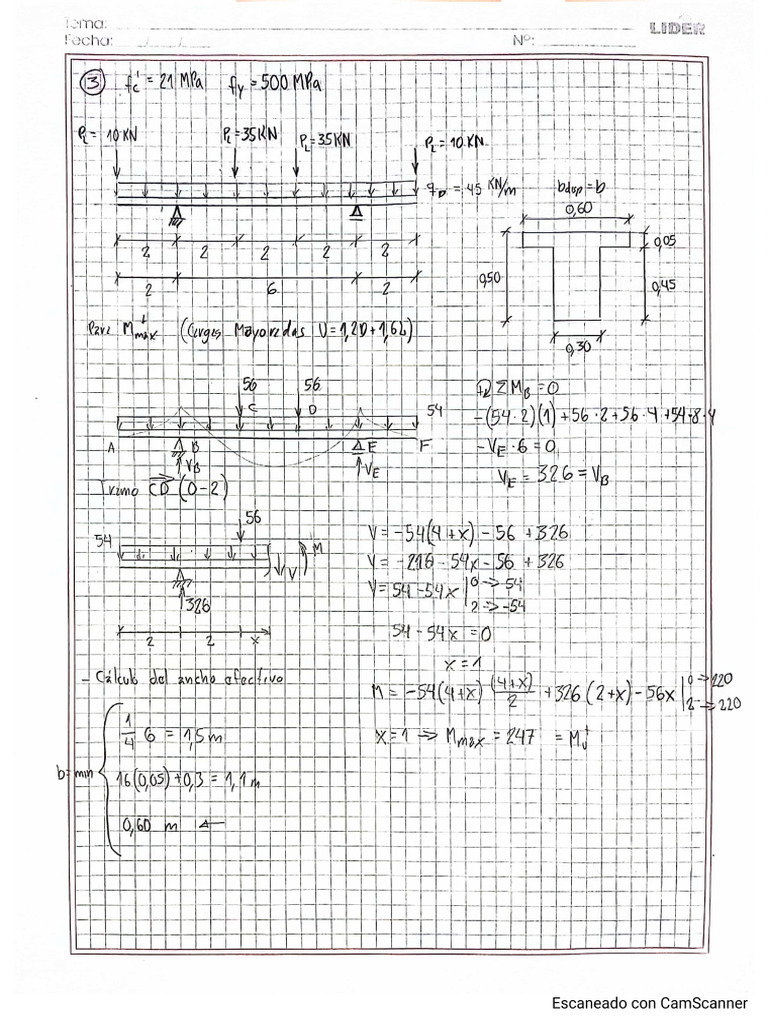 Tema:
LIDER
Fecha: / /
Nº:
③ f'c = 21 MPa fy = 500 MPa
PL = 10 KN
PL = 35 KN
PL = 35 KN
PL = 10 KN
qD = 45 KN/m
bdisp = b
0,60
0,05
0,50
0,45
0,30
2 2 2 2 2
2 6 2
Para M+máx (Cargas Mayoradas U = 1,2D + 1,6L)
56 56
C D 54
A B E F
VB VE
+ ΣMB = 0
-(54·2)(1) + 56·2 + 56·4 + 54·8·4
- VE·6 = 0
VE = 326 = VB
Tramo CD (0-2)
56
54
M
V
326
2 2 x
V = -54(4+x) - 56 + 326
V = -216 - 54x - 56 + 326
V = 54 - 54x | 0 -> 54
2 -> -54
54 - 54x = 0
x = 1
M = -54(4+x) (4+x)/2 + 326(2+x) - 56x | 0 -> 220
2 -> 220
x = 1 => Mmáx = 247 = Mu+
- Cálculo del ancho efectivo
b = min
1/4 6 = 1,5 m
16(0,05) + 0,3 = 1,1 m
0,60 m ←
Escaneado con CamScanner